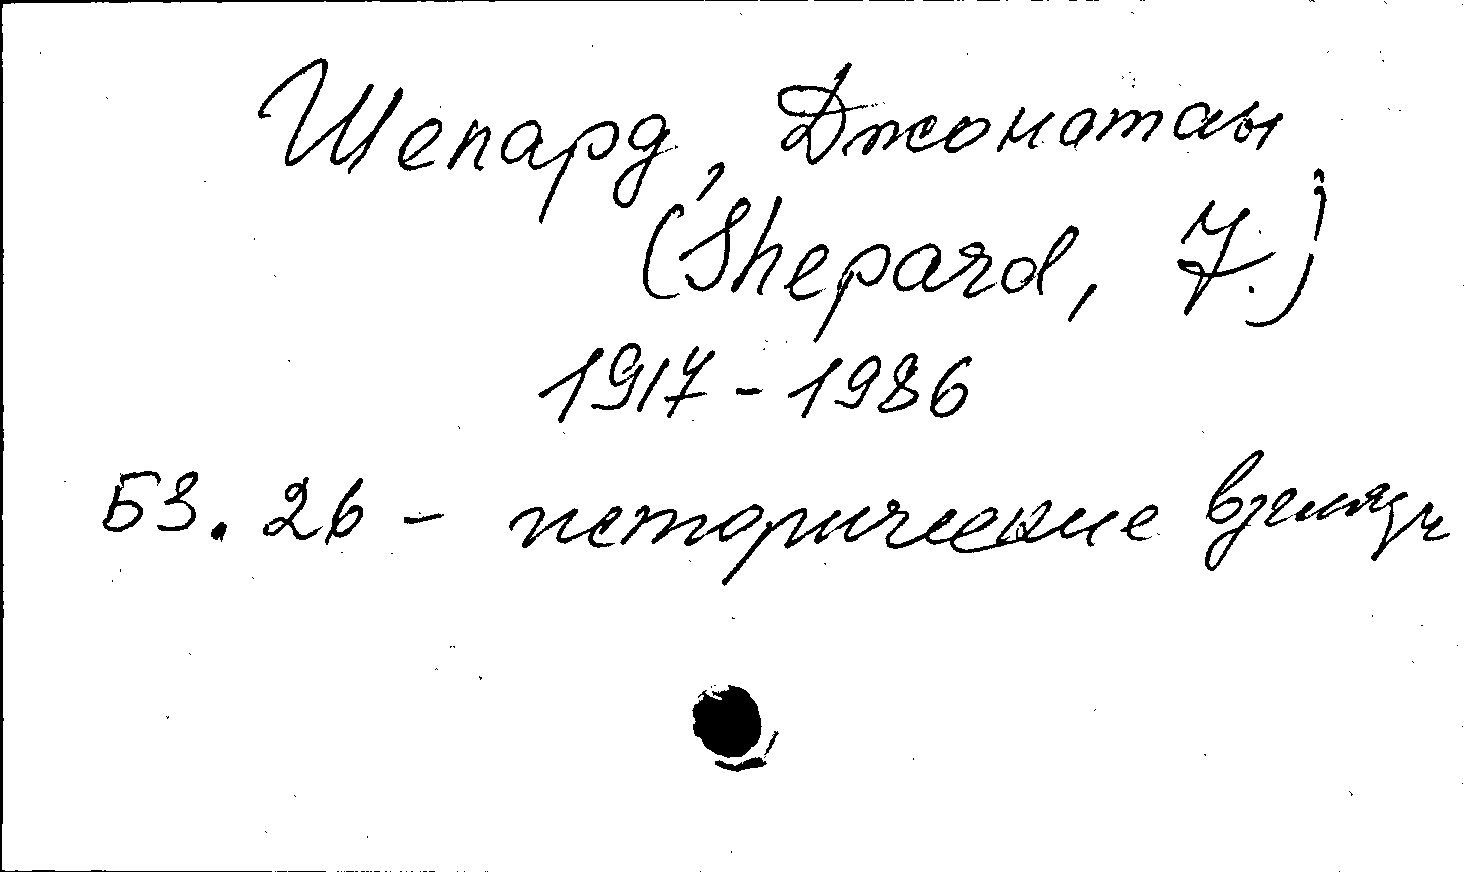 Шепард, Джонатан
(Shepard, J.)
1917-1986
Б3.26 - исторические взгляды